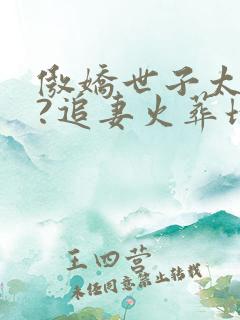 傲娇世子太
?追妻火葬场
王四营
未经同意禁止转载